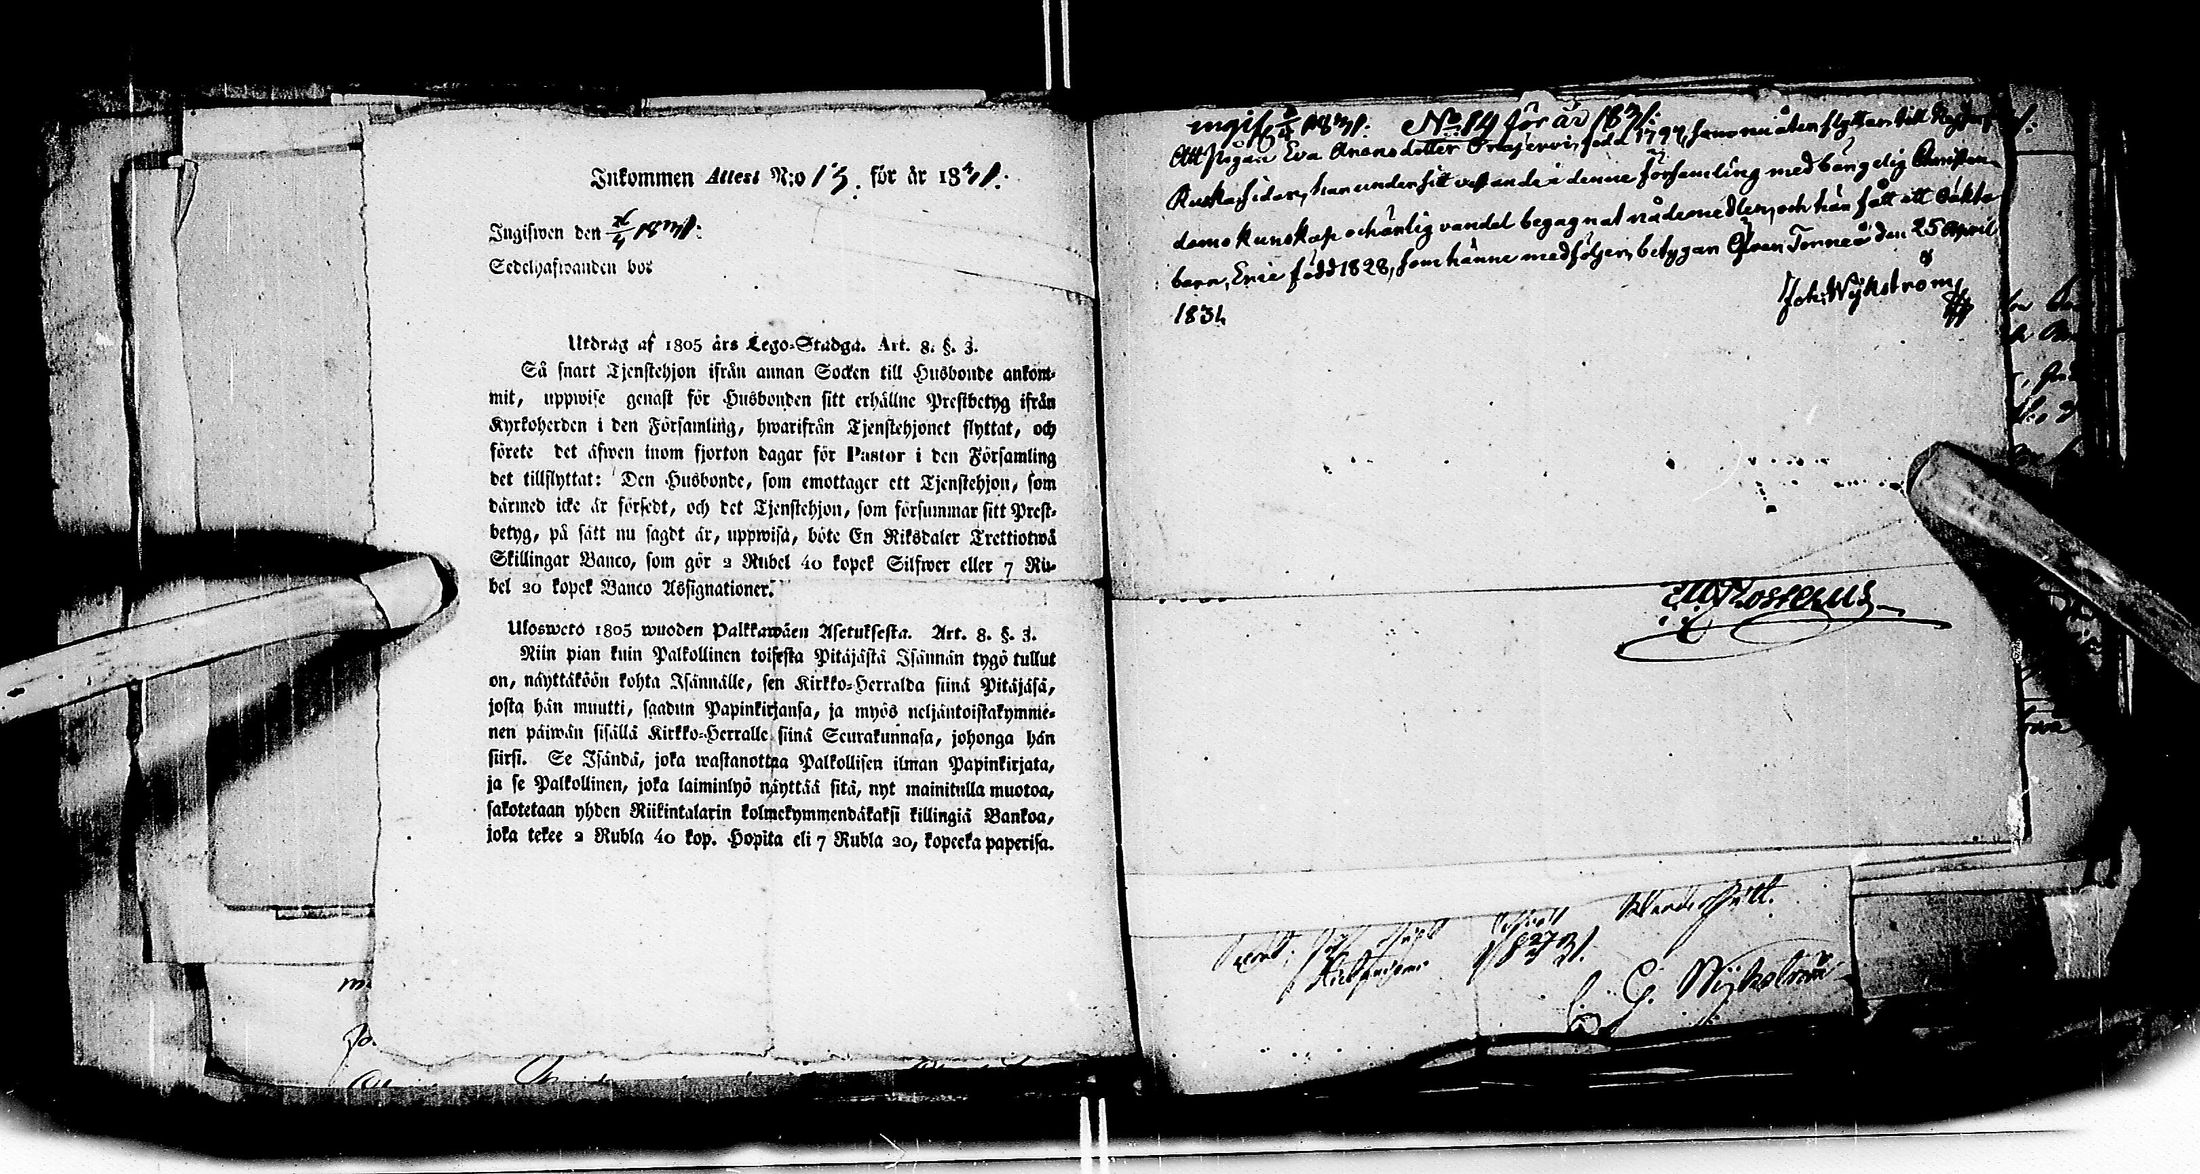 Inkommen Attest N:o 13. för år 1831.
Ingifwen den 26/4 1831:
Sedelhafwanden bor
Utdrag af 1805 års Lego-Stadga. Art. 8. §. 3.
Så snart Tjenstehjon ifrån annan Socken till Husbonde ankom-
mit, uppwise genast för Husbonden sitt erhållne Prestbetyg ifrån
Kyrkoherden i den Församling, hwarifrån Tjenstehjonet flyttat, och
förete det äfwen inom fjorton dagar för Pastor i den Församling
det tillflyttat: Den Husbonde, som emottager ett Tjenstehjon, som
därmed icke är försedt, och det Tjenstehjon, som försummar sitt Prest-
betyg, på sätt nu sagdt är, uppwisa, böte En Riksdaler Trettiotwå
Skillingar Banco, som gör 2 Rubel 40 kopek Silfwer eller 7 Ru-
bel 20 kopek Banco Assignationer.
Ulosweto 1805 wuoden Palkkawäen Asetuksesta. Art. 8. §. 3.
Niin pian kuin Palkollinen toisesta Pitäjästä Isännän tygö tullut
on, näyttäköön kohta Isännälle, sen Kirkko-Herralda siinä Pitäjäsä,
josta hän muutti, saadun Papinkirjansa, ja myös neljäntoistakymme-
nen päiwän sisällä Kirkko-Herralle siinä Seurakunnasa, johonga hän
siirsi. Se Isändä, joka wastanottaa Palkollisen ilman Papinkirjata,
ja se Palkollinen, joka laiminlyö näyttää sitä, nyt mainitulla muotoa,
sakotetaan yhden Riikintalarin kolmekymmendäkaksi killingiä Bankoa,
joka tekee 2 Rubla 40 kop. Hopita eli 7 Rubla 20, kopecka paperisa.
ingif 1831: No 14 för år 1831:
Att pigan Eva Aronsdotter född 1794, som nu åter flyttar till
Ruskasidan, har under sitt vistande i denne församling med börgelig Christen-
doms kunskap och ärlig vandel begagnat nådemedlen, och har fått ett oäkta
barn, Eric född 1828, som hänne medföljer, betygar Öfver Torneå den 25 April
1831. Joh. Wijkström
Wanderstätt.
1831.
C. G. Wijkström